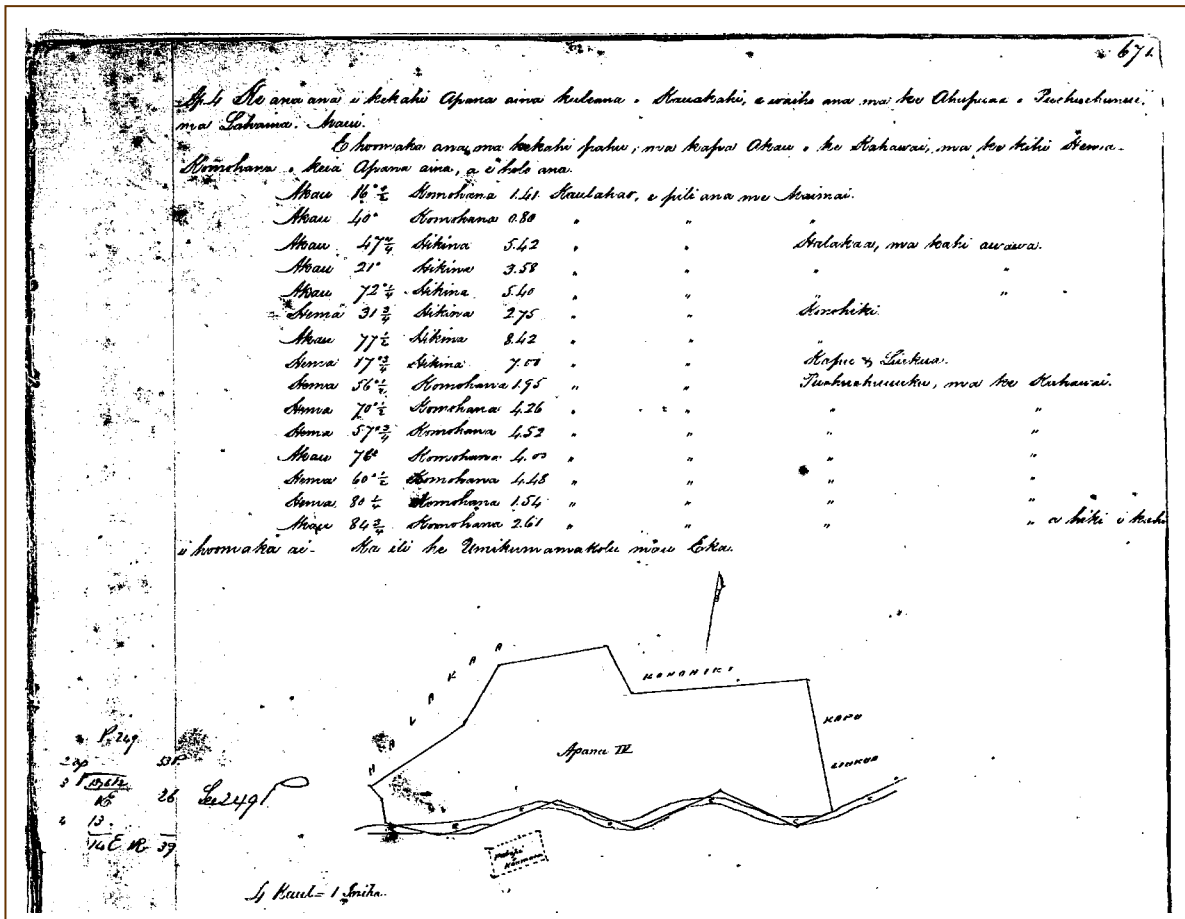 671.
Ap. 4 He ana ana i kekahi Apana aina kuleana o Kauakahi, e waiho ana ma ke Ahupuaa o
ma Lahaina. Maui.
E hoomaka ana, ma kekahi pahu, ma kapa Akau o ke Kahawai, ma ke kihi Hema-
Komohana o keia Apana aina, a e holo ana.
Akau 16°½ Komohana 1.41 Kaulahao, e pili ana me Maimai.
Akau 40° Komohana 0.80 " " "
Akau 47°¼ Hikina 5.42 " " Halakaa, ma kahi awawa.
Akau 21° Hikina 3.58 " " " "
Akau 72°¼ Hikina 5.40 " " " "
Hema 31¾ Hikina 2.75 " " Konohiki.
Akau 77½ Hikina 8.42 " " "
Hema 17°¾ Hikina 7.00 " " Kapu & Liukua.
Hema 56°½ Komohana 1.95 " " ma ke Kahawai.
Hema 70°½ Komohana 4.26 " " " "
Hema 57°¾ Komohana 4.52 " " " "
Akau 76° Komohana 4.00 " " " "
Hema 60°½ Komohana 4.48 " " " "
Hema 80¼ Komohana 1.54 " " " "
Akau 84¾ Komohana 2.61 " " " " a hiki i kahi
i hoomaka ai - Ka ili he Umikumamakolu mau Eka.
HALAKAA
KONOHIKI
KAPU
LIUKUA
Apana IV
P. 249
2 ap 53 P
3
26
4 13.
14 E 39
See 249 P
4 Kaul = 1 Iniha.